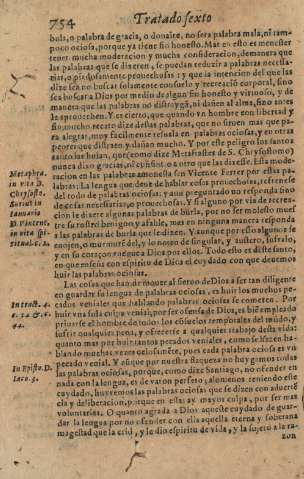 754 Tratado sexto
bula, o palabra de gracia, o donaire, no sera palabra mala, ni tam-
poco ociosa, porque ya tiene fin honesto. Mas en esto es menester
tener mucha moderacion y mucha consideracion, demanera que
las palabras que se dizeren, se puedan reduzir a palabras necessa-
rias, o piadosamente prouechosas: y que la intencion del que las
dize sea no buscar solamente consuelo y recreacion corporal, sino
sea buscar a Dios por medio de algun fin honesto y virtuoso, y de
manera que las palabras no distraygã, ni dañen al alma, sino antes
le aprouechen. Y es cierto, que quando vn hombre con libertad y
sin mucho recato dize destas palabras, que no siruen mas que pa-
ra alegrar, muy facilmente resuala en palabras ociosas, y en otras
peores que distraen, y dañan mucho. Y por este peligro los santos
assi las huian, que (como dize Metafraste de S. Chrysostomo)
nunca dixo gracias, ni consintio a otro que las dixesse. Esta mode-
racion en las palabras amonesta san Vicente Ferrer por estas pa-
labras: La lengua que deue de hablar cosas prouechosas, refrene se
del todo de palabras ociosas: y aun preguntado no responda sino
de cosas necessarias, o prouechosas. Y si alguno por via de recrea-
cion le dixere algunas palabras de burla, por no ser molesto mues-
tre su rostro benigno y afable, mas en ninguna manera responda
a las palabras de burla que le dizen. Y aunque por esso algunos se
enojen, o murmurẽ del, y lo noten de singular, y austero, sufralo,
y en su coraçon ruegue a Dios por ellos. Todo esto es deste santo,
en que enseña con espiritu de Dios el cuydado con que deuemos
huir las palabras ociosas.
Las cosas que han de mouer al sieruo de Dios a ser tan diligente
en guardar su lengua de palabras ociosas, es huir los muchos pe-
cados veniales que hablando palabras ociosas se cometen. Por
huir vna sola culpa venial, por ser ofensa de Dios, es biẽ empleado
priuarse el hombre de todos los consuelos temporales del mũdo, y
sufrir qualquier pena, y ofrecerse a qualquier trabajo desta vida:
quanto mas por huir tantos pecados veniales, como se hazen ha-
blando muchas vezes ociosamẽte, pues cada palabra ociosa es vn
pecado venial. Y aũque por nuestra flaqueza no huygamos todas
las palabras ociosas, porque, como dize Santiago, no ofender en
nada con la lengua, es de varon perfeto; alomenos teniendo este
cuydado, huyremos las palabras ociosas que se dizen con aduertẽ
cia y deliberacion, porque en estas ay mayor culpa, por ser mas
voluntarias. O quanto agrada a Dios aqueste cuydado de guar-
dar la lengua por no ofender con ella aquella eterna y soberana
magestad que la criò, y le dio espiritu de vida, y la sujetò a la ra-
zon
Metaphra.
in vita D.
Chrysost.
Surius in
Ianuario
D. Vincent.
in vita spi-
ritual. c. 2.
In Epist. D.